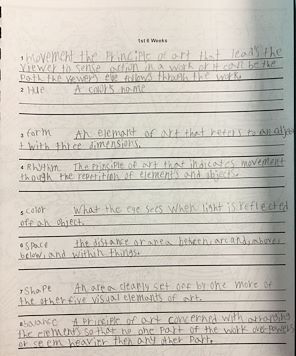 1st 6 Weeks
1 movement the Principle of art that leads the
viewer to sense action in a work of it can be the
Path the vewers eye follows through the work.
2 Hue A color's name
3 form An elemant of art that refers to an objec
t with three dimensions.
4 Rhythm The Principle of art that indicates movement
though the repetition of elements and objects.
5 color What the eye sees when light is reflected
off an object.
6 space the distance or area between, arcand, above,
below, and within things.
7 Shape An area cleanly set off by one more of
the other five visual elemants of art.
8 Balance A Principle of art concerned with arranging
the elements so that no one part of the work over powers
or seem heavier then any other part.